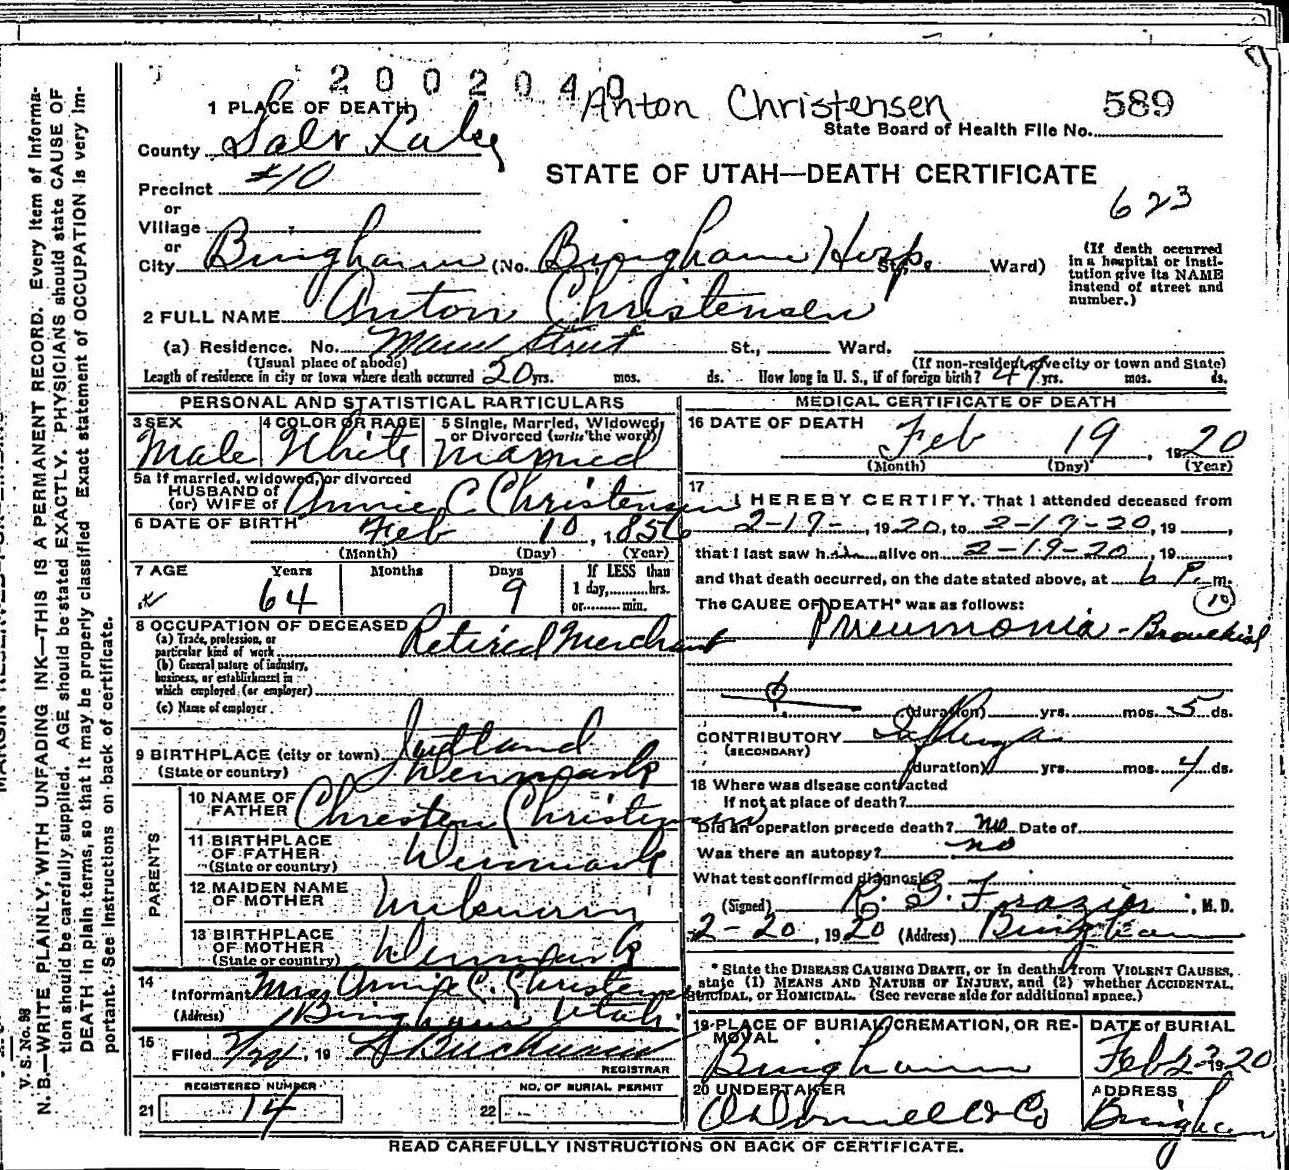 2002040
Anton Christensen 589
1 PLACE OF DEATH
State Board of Health File No.
County Salt Lake
STATE OF UTAH—DEATH CERTIFICATE
Precinct #10
623
or
Village
or
City Bingham (No. Bingham Hosp St., Ward)
(If death occurred
in a hospital or insti-
tution give its NAME
instead of street and
number.)
2 FULL NAME Anton Christensen
(a) Residence. No. Main Street St., Ward.
(Usual place of abode) (If non-resident, give city or town and State)
Length of residence in city or town where death occurred 20 yrs. mos. ds. How long in U. S., if of foreign birth? 49 yrs. mos. ds.
PERSONAL AND STATISTICAL PARTICULARS
3 SEX
Male
4 COLOR OR RACE
White
5 Single, Married, Widowed,
or Divorced (write the word)
Married
5a If married, widowed, or divorced
HUSBAND of
(or) WIFE of Annie C. Christensen
6 DATE OF BIRTH Feb 10, 1856
(Month) (Day) (Year)
7 AGE Years Months Days If LESS than
1 day, hrs.
or min.
64 9
8 OCCUPATION OF DECEASED
(a) Trade, profession, or
particular kind of work Retired Merchant
(b) General nature of industry,
business, or establishment in
which employed (or employer)
(c) Name of employer
9 BIRTHPLACE (city or town) Jutland
(State or country) Denmark
PARENTS
10 NAME OF
FATHER Christen Christensen
11 BIRTHPLACE
OF FATHER
(State or country) Denmark
12 MAIDEN NAME
OF MOTHER Unknown
13 BIRTHPLACE
OF MOTHER
(State or country) Denmark
14
Informant Mrs Annie C. Christensen
(Address) Bingham Utah.
15
Filed 19 Buchanan
REGISTRAR
REGISTERED NUMBER NO. OF BURIAL PERMIT
21 14 22
MEDICAL CERTIFICATE OF DEATH
16 DATE OF DEATH
Feb 19, 1920
(Month) (Day) (Year)
17
I HEREBY CERTIFY, That I attended deceased from
2-19-, 1920, to 2-19-20, 19
that I last saw him alive on 2-19-20, 19
and that death occurred, on the date stated above, at 6 P. m.
The CAUSE OF DEATH* was as follows: 10
Pneumonia - Bronchial
(duration) yrs. mos. 5 ds.
CONTRIBUTORY Influenza
(SECONDARY)
(duration) yrs. mos. 4 ds.
18 Where was disease contracted
If not at place of death?
Did an operation precede death? no Date of
Was there an autopsy? no
What test confirmed diagnosis?
(Signed) R. G. Frazier, M. D.
2-20, 1920 (Address) Bingham
* State the DISEASE CAUSING DEATH, or in deaths from VIOLENT CAUSES,
state (1) MEANS AND NATURE OF INJURY, and (2) whether ACCIDENTAL,
SUICIDAL, or HOMICIDAL. (See reverse side for additional space.)
19 PLACE OF BURIAL, CREMATION, OR RE-
MOVAL
Bingham
DATE of BURIAL
Feb 22 1920
20 UNDERTAKER
O'Donnell & Co
ADDRESS
Bingham
READ CAREFULLY INSTRUCTIONS ON BACK OF CERTIFICATE.
V. S. No. 98
N. B.—WRITE PLAINLY, WITH UNFADING INK—THIS IS A PERMANENT RECORD. Every item of informa-
tion should be carefully supplied. AGE should be stated EXACTLY. PHYSICIANS should state CAUSE OF
DEATH in plain terms, so that it may be properly classified. Exact statement of OCCUPATION is very im-
portant. See instructions on back of certificate.